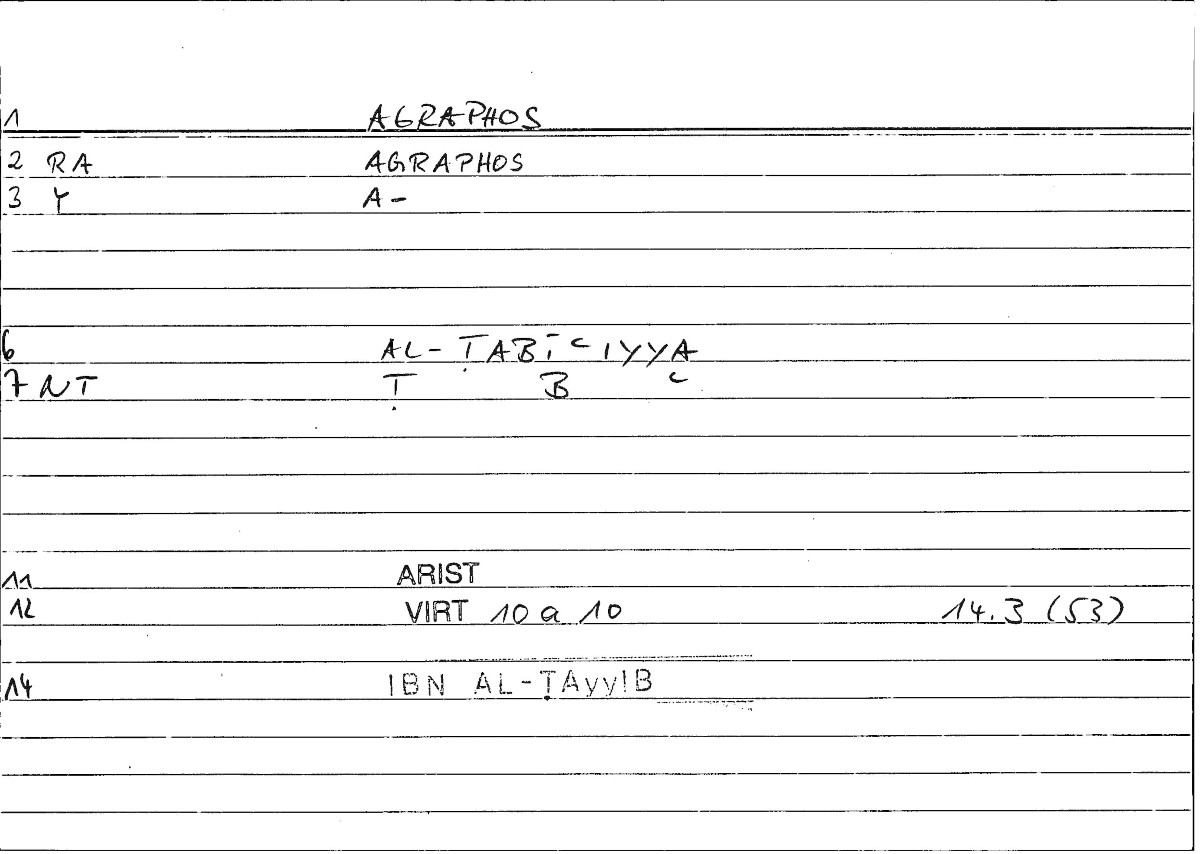 1 AGRAPHOS
2 RA AGRAPHOS
3 Y A-
6 AL-ṬABĪʿIYYA
7 NT Ṭ B ʿ
11 ARIST
12 VIRT 10 a 10 14.3 (53)
14 IBN AL-ṬAyyIB